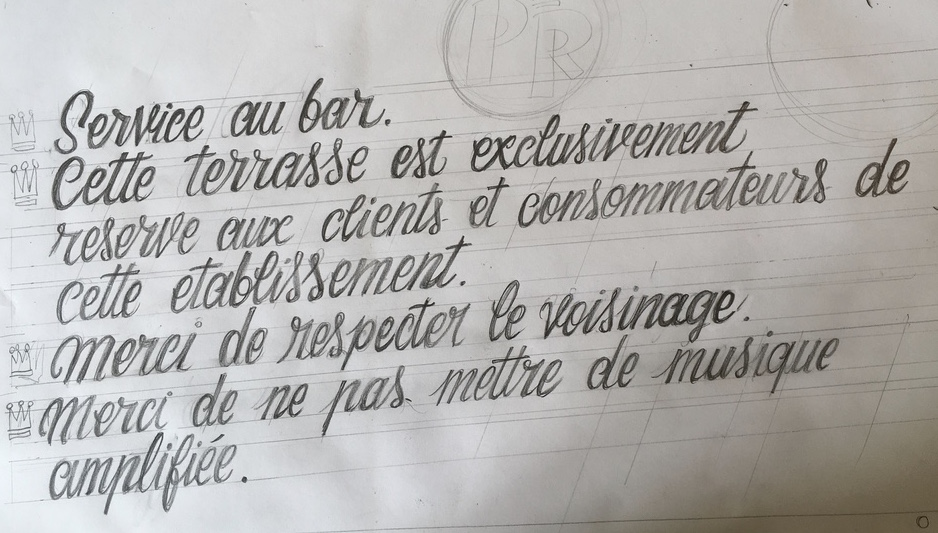 PR
Service au bar.
Cette terrasse est exclusivement
reserve aux clients et consommateurs de
cette etablissement.
Merci de respecter le voisinage.
Merci de ne pas mettre de musique
amplifiée.